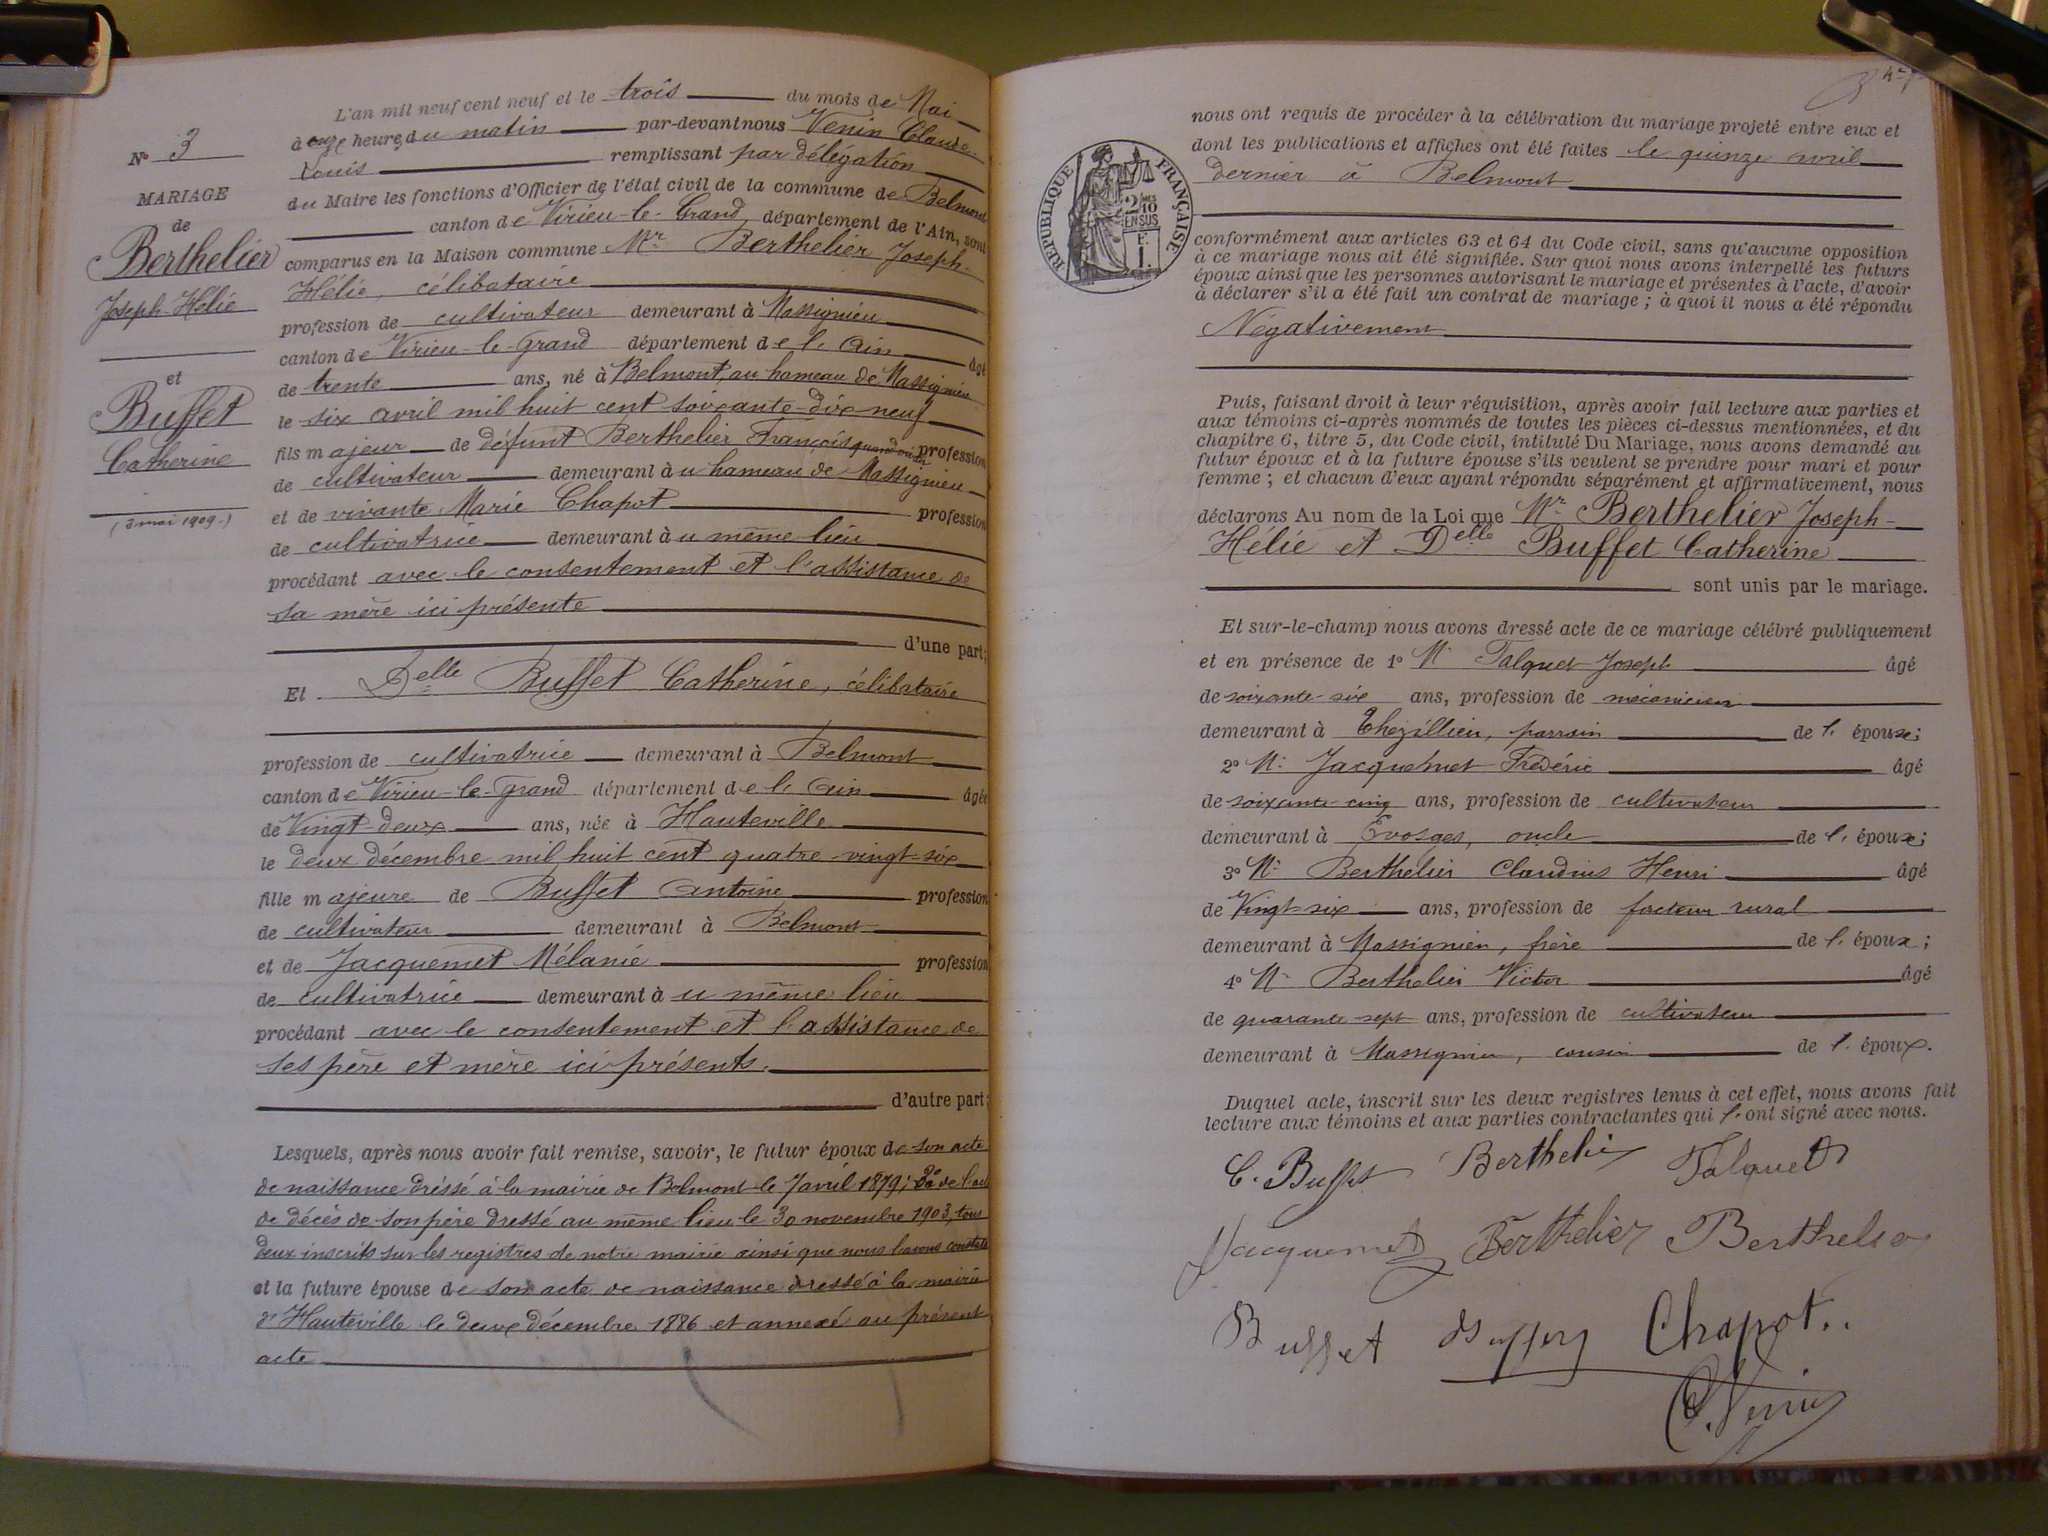 L'an mil neuf cent neuf et le trois du mois de Mai
à onze heures du matin par-devant nous Venin Claude-
Louis remplissant par délégation
du Maire les fonctions d'Officier de l'état civil de la commune de Belmont
canton de Virieu-le-Grand, département de l'Ain, sont
comparus en la Maison commune Mr Berthelier Joseph-
Hélie, célibataire
profession de cultivateur demeurant à Massignieu
canton de Virieu-le-Grand département de l'Ain âgé
de trente ans, né à Belmont, au hameau de Massignieu
le six avril mil huit cent soixante-dix neuf
fils majeur de défunt Berthelier François quand vivait profession
de cultivateur demeurant à u hameau de Massignieu
et de vivante Marie Chapot profession
de cultivatrice demeurant à u même lieu
procédant avec le consentement et l'assistance de
sa mère ici présente
d'une part;
Et Delle Buffet Catherine, célibataire
profession de cultivatrice demeurant à Belmont
canton de Virieu-le-Grand département de l'Ain âgée
de Vingt-deux ans, née à Hauteville
le deux décembre mil huit cent quatre-vingt-six
fille majeure de Buffet Antoine profession
de cultivateur demeurant à Belmont
et de Jacquemet Mélanie profession
de cultivatrice demeurant à u même lieu
procédant avec le consentement et l'assistance de
ses père et mère ici présents.
d'autre part;
Lesquels, après nous avoir fait remise, savoir, le futur époux de son acte
de naissance dressé à la mairie de Belmont le 7 avril 1879; 2° de l'acte
de décès de son père dressé au même lieu le 30 novembre 1903, tous
deux inscrits sur les registres de notre mairie ainsi que nous l'avons constaté
et la future épouse de son acte de naissance dressé à la mairie
d'Hauteville le deux décembre 1886 et annexé au présent
acte
N° 3
MARIAGE
de
Berthelier
Joseph-Hélie
et
Buffet
Catherine
(3 mai 1909.)
nous ont requis de procéder à la célébration du mariage projeté entre eux et
dont les publications et affiches ont été faites le quinze avril
dernier à Belmont
RÉPUBLIQUE FRANÇAISE
2/10
EN SUS
F.
1.
conformément aux articles 63 et 64 du Code civil, sans qu'aucune opposition
à ce mariage nous ait été signifiée. Sur quoi nous avons interpellé les futurs
époux ainsi que les personnes autorisant le mariage et présentes à l'acte, d'avoir
à déclarer s'il a été fait un contrat de mariage; à quoi il nous a été répondu
Négativement
Puis, faisant droit à leur réquisition, après avoir fait lecture aux parties et
aux témoins ci-après nommés de toutes les pièces ci-dessus mentionnées, et du
chapitre 6, titre 5, du Code civil, intitulé Du Mariage, nous avons demandé au
futur époux et à la future épouse s'ils veulent se prendre pour mari et pour
femme; et chacun d'eux ayant répondu séparément et affirmativement, nous
déclarons Au nom de la Loi que Mr Berthelier Joseph-
Hélie et Delle Buffet Catherine
sont unis par le mariage.
Et sur-le-champ nous avons dressé acte de ce mariage célébré publiquement
et en présence de 1° M. Talquet Joseph âgé
de soixante-six ans, profession de mécanicien
demeurant à Thézillieu, parrain de l'épouse;
2° M. Jacquemet Frédéric âgé
de soixante-cinq ans, profession de cultivateur
demeurant à Evosges, oncle de l'épouse;
3° M. Berthelier Claudius Henri âgé
de Vingt-six ans, profession de facteur rural
demeurant à Massignieu, frère de l'époux;
4° M. Berthelier Victor âgé
de quarante-sept ans, profession de cultivateur
demeurant à Massignieu, cousin de l'époux.
Duquel acte, inscrit sur les deux registres tenus à cet effet, nous avons fait
lecture aux témoins et aux parties contractantes qui l'ont signé avec nous.
C. Buffet Berthelier Talquet
Jacquemet Berthelier Berthelier
Buffet Chapot..
C. Venin